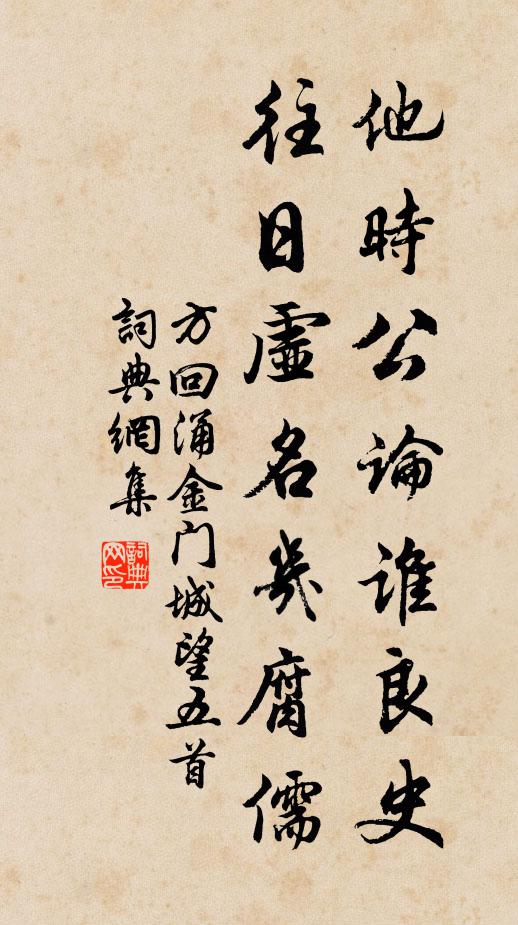 他時公論誰良史
往日虛名幾腐儒
方回涌金门城望五首
詞典網集
詞典网印